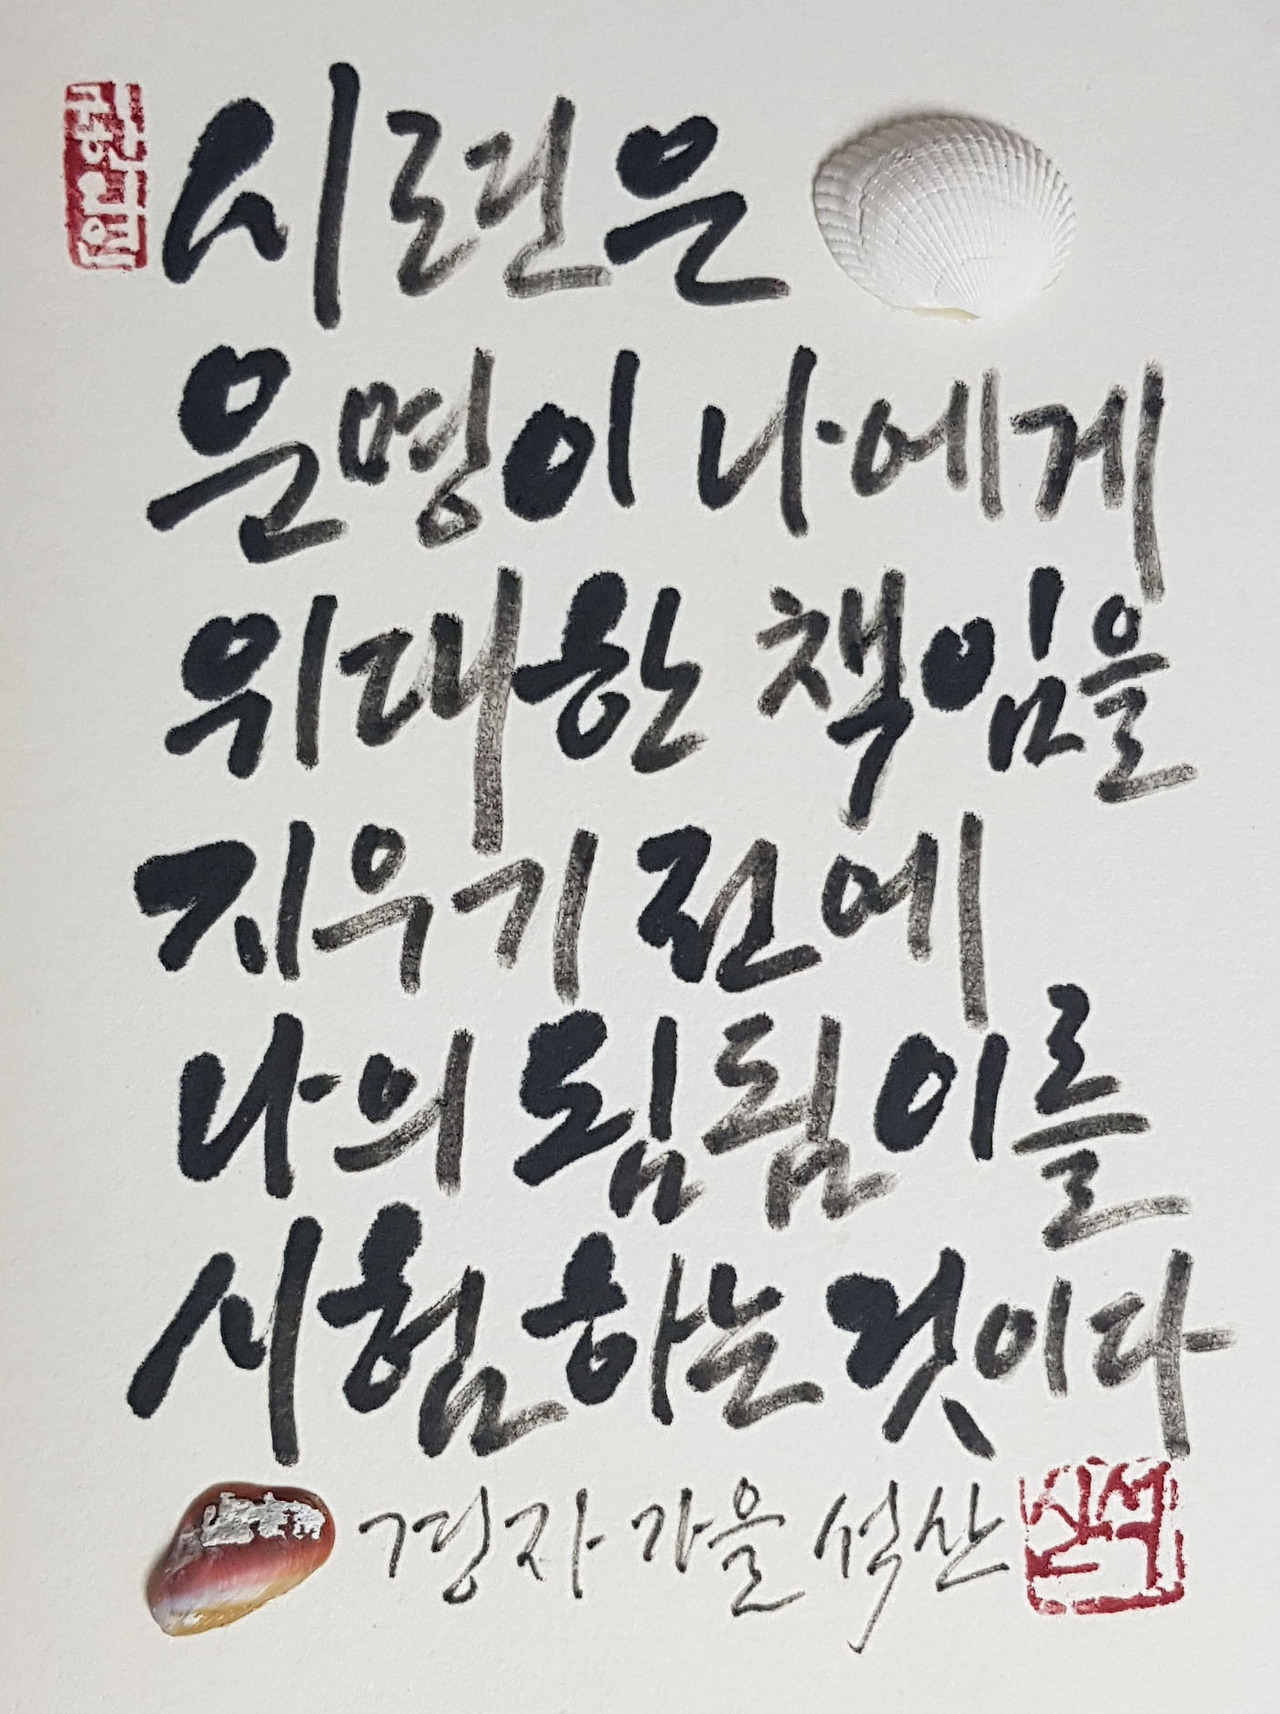 시련은
운명이 나에게
위대한 책임을
지우기 전에
나의 됨됨이를
시험하는 것이다
경자 가을 석산
석산